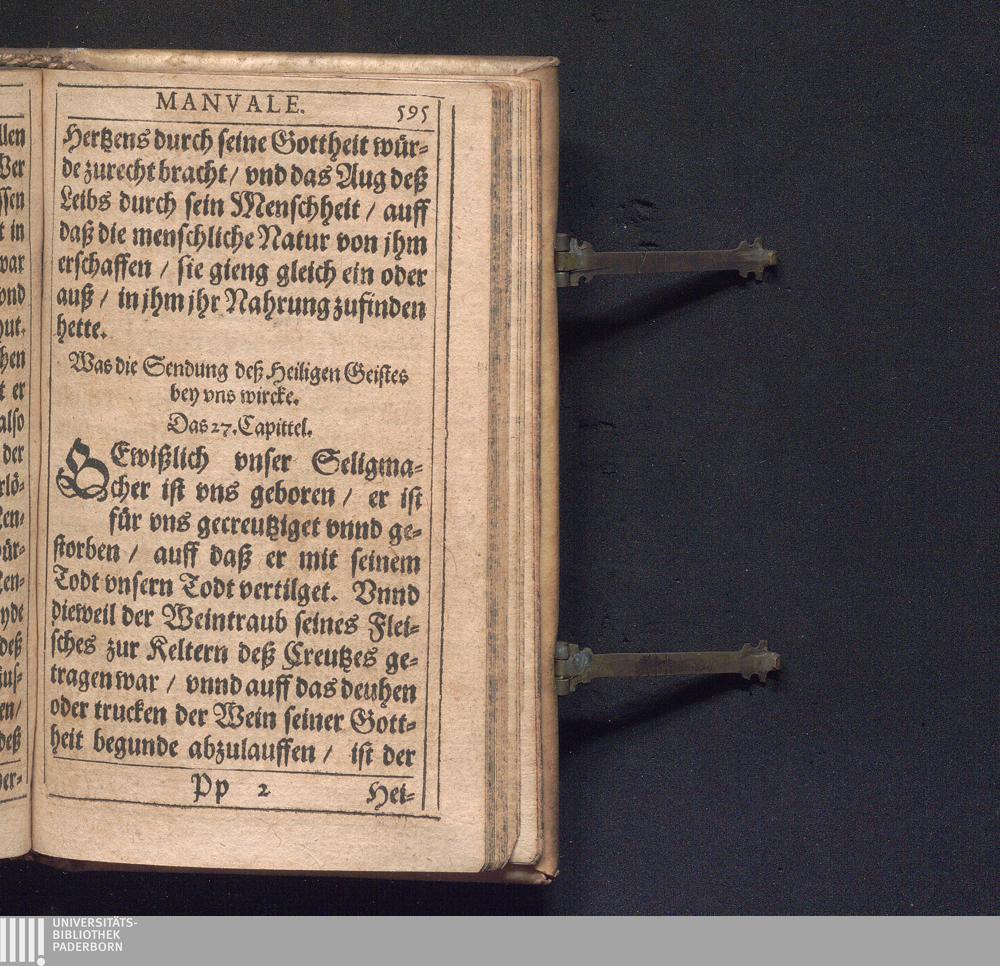 MANVALE. 595
Hertzens durch seine Gottheit wür-
de zurecht bracht / vnd das Aug deß
Leibs durch sein Menschheit / auff
daß die menschliche Natur von jhm
erschaffen / sie gieng gleich ein oder
auß / in jhm jhr Nahrung zufinden
hette.
Was die Sendung deß Heiligen Geistes
bey vns wircke.
Das 27. Capittel.
GEwißlich vnser Seligma-
cher ist vns geboren / er ist
für vns gecreutziget vnnd ge-
storben / auff daß er mit seinem
Todt vnsern Todt vertilget. Vnnd
dieweil der Weintraub seines Flei-
sches zur Keltern deß Creutzes ge-
tragen war / vnnd auff das deuhen
oder trucken der Wein seiner Gott-
heit begunde abzulauffen / ist der
Pp 2 Hei-
UNIVERSITÄTS-
BIBLIOTHEK
PADERBORN